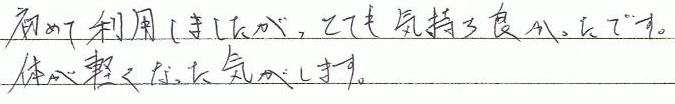 初めて利用しましたが、とても気持ち良かったです。
体が軽くなった気がします。